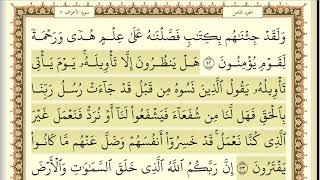 الجزء الثامن سورة الأعراف ٧
وَلَقَدْ جِئْنَٰهُم بِكِتَٰبٍ فَصَّلْنَٰهُ عَلَىٰ عِلْمٍ هُدًى وَرَحْمَةً
لِّقَوْمٍ يُؤْمِنُونَ ٥٢ هَلْ يَنظُرُونَ إِلَّا تَأْوِيلَهُۥ ۚ يَوْمَ يَأْتِى
تَأْوِيلُهُۥ يَقُولُ الَّذِينَ نَسُوهُ مِن قَبْلُ قَدْ جَآءَتْ رُسُلُ رَبِّنَا
بِالْحَقِّ فَهَل لَّنَا مِن شُفَعَآءَ فَيَشْفَعُوا۟ لَنَآ أَوْ نُرَدُّ فَنَعْمَلَ غَيْرَ
الَّذِى كُنَّا نَعْمَلُ ۚ قَدْ خَسِرُوٓا۟ أَنفُسَهُمْ وَضَلَّ عَنْهُم مَّا كَانُوا۟
يَفْتَرُونَ ٥٣ إِنَّ رَبَّكُمُ اللَّهُ الَّذِى خَلَقَ السَّمَٰوَٰتِ وَالْأَرْضَ